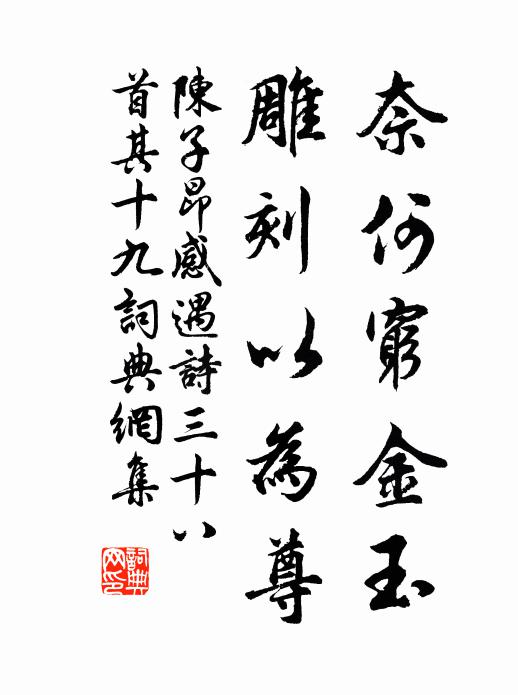 奈何窮金玉
雕刻以為尊
陳子昂感遇詩三十八
首其十九詞典網集
詞典网印